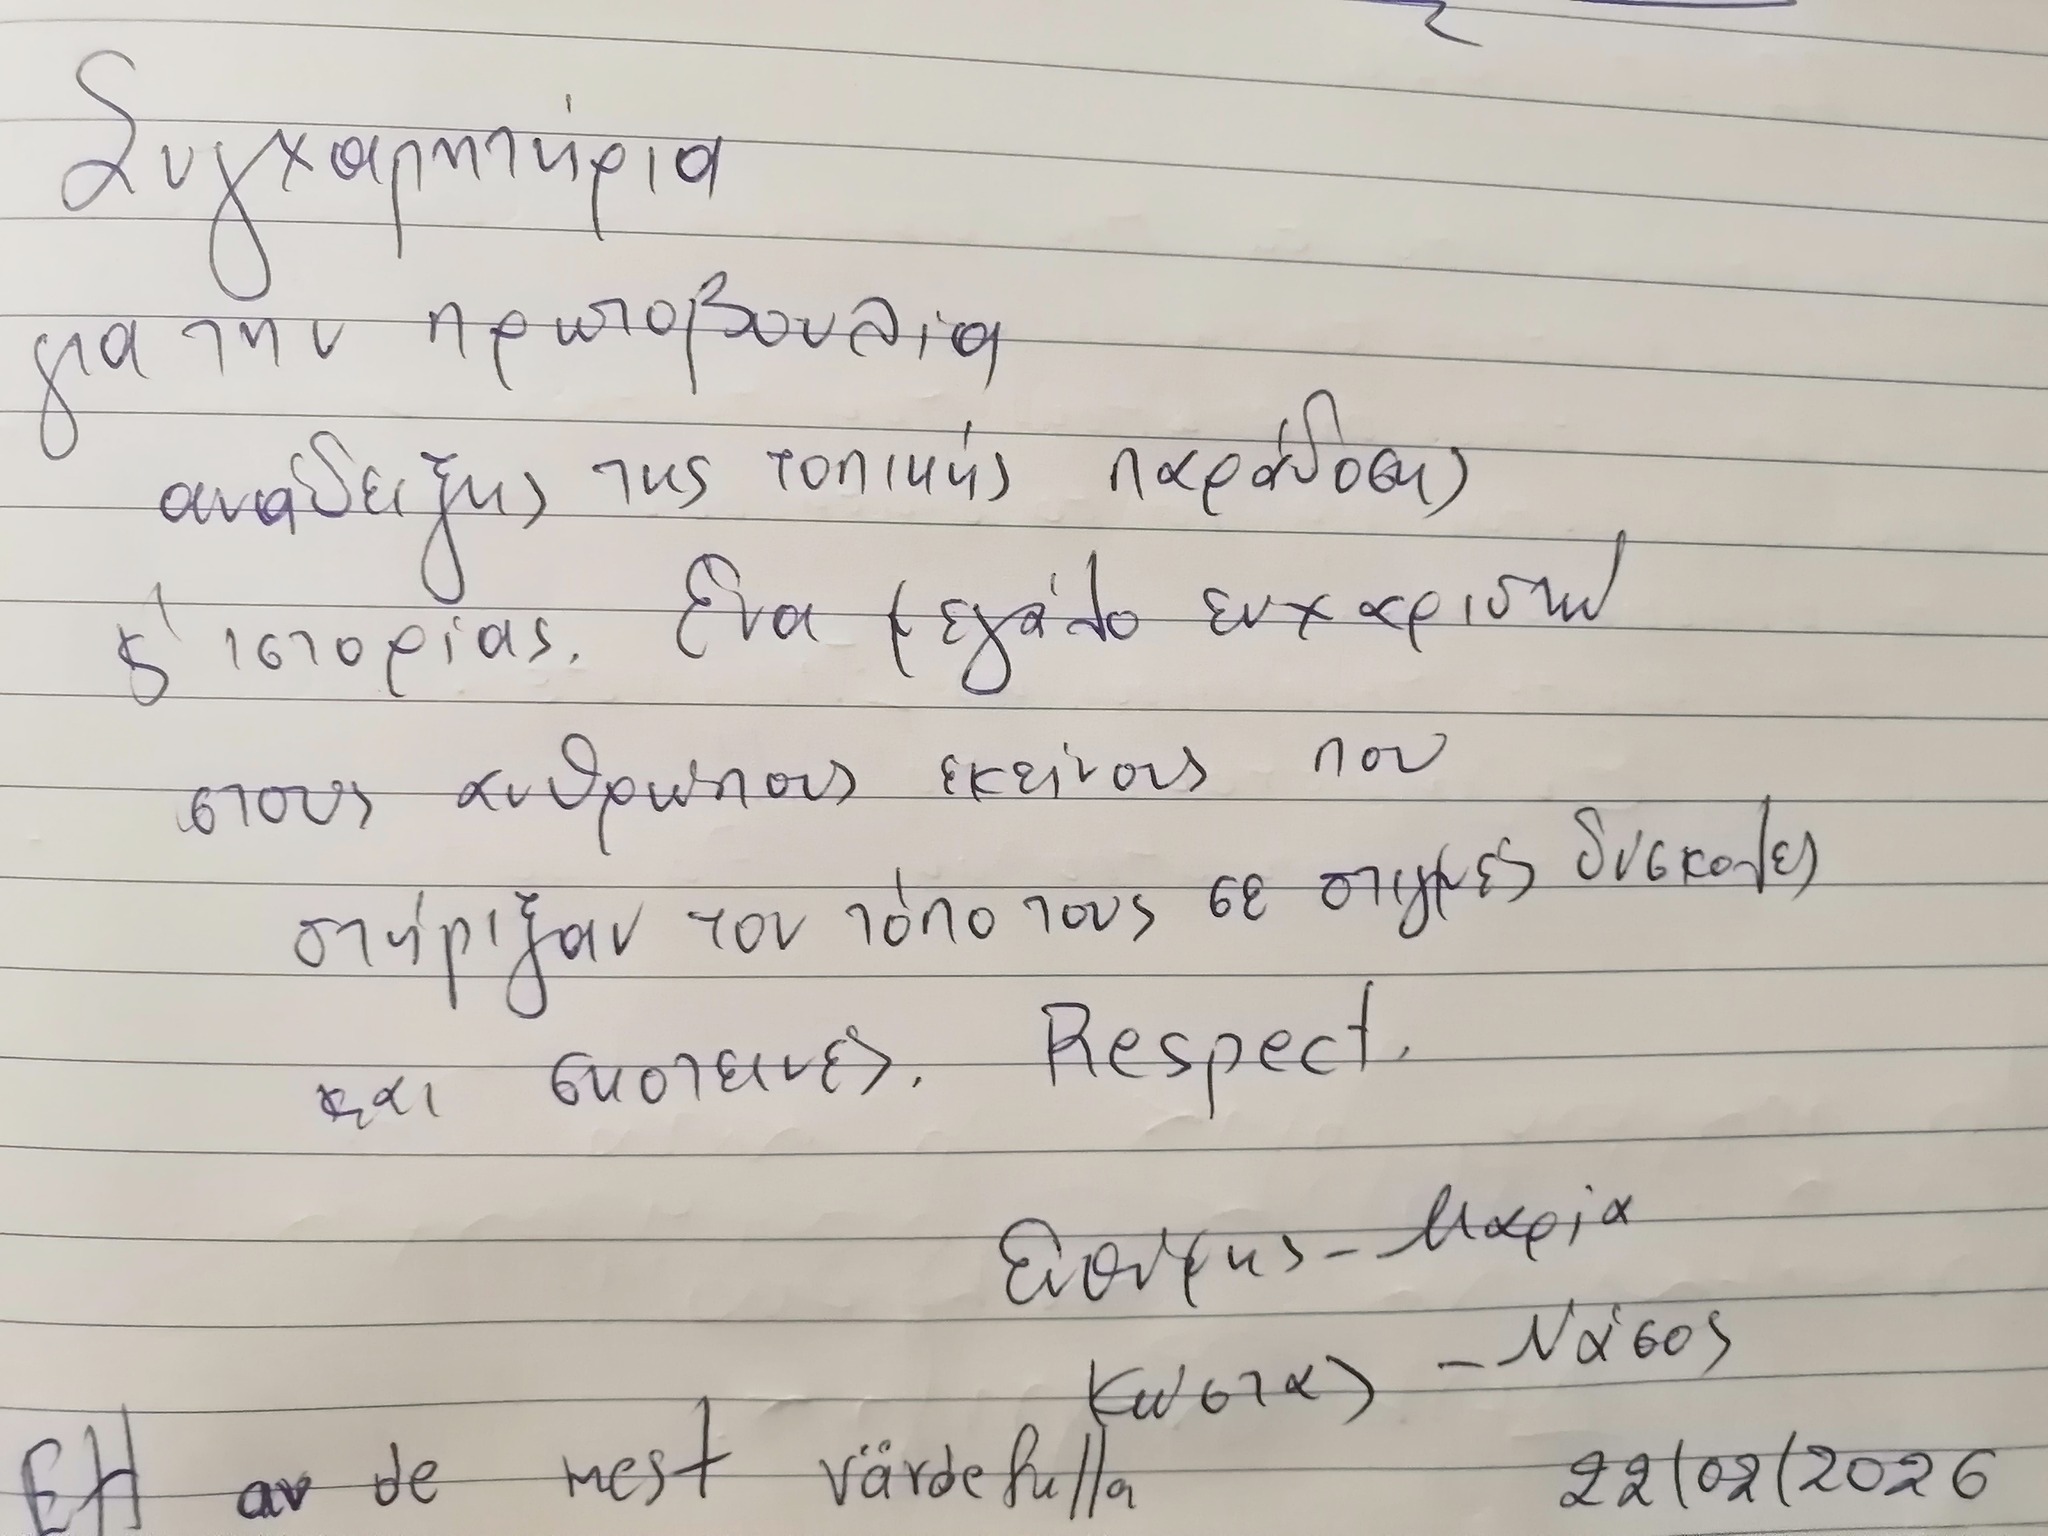 Συγχαρητήρια
για την πρωτοβουλία
ανάδειξης της τοπικής παράδοσης
& ιστορίας. Ένα μεγάλο ευχαριστώ
στους ανθρώπους εκείνους που
στήριξαν τον τόπο τους σε στιγμές δύσκολες
και σκοτεινές. Respect.
Ευθύμης - Μαρία
Κώστας - Νάσος
Ett av de mest värdefulla 22/02/2026